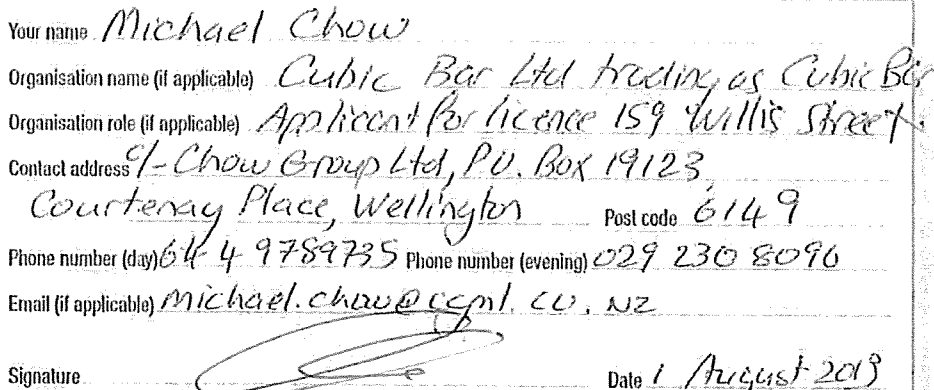 Your name Michael Chow
Organisation name (if applicable) Cubic Bar Ltd trading as Cubic Bar
Organisation role (if applicable) Applicant for licence 159 Willis Street.
Contact address c/- Chow Group Ltd, P.O. Box 19123,
Courtenay Place, Wellington Post code 6149
Phone number (day) 64 4 9789735 Phone number (evening) 029 230 8096
Email (if applicable) michael.chow@ccpnl.co.nz
Signature Date 1 August 2013